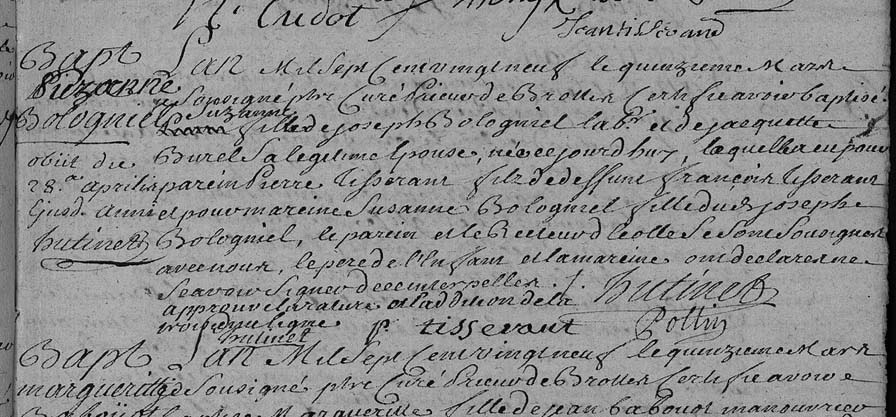 Cudot
Jean tisserand
Bapt L'an Mil Sept Cent vingt neuf le quinzieme Mars Je
Suzanne Soussigné ptre Curé Prieur de Brottes Certifie avoir baptisé
Bologniel Suzanne fille de joseph Bologniel labr et de jacquette
obiit die Burel Sa legitime Epouse, née ce jourdhuy, laquelle a eu pour
28.a aprilis parein Pierre tisserant fils de deffunt françois tisserant
Ejusd. anni et pour mareine Susanne Bologniel fille dud. joseph
hutinet Bologniel, le parein et le Recteur d'ecolle Se Sont Soussignés
avec nous, le pere de l'Enfant et la mareine ont declarés ne
Scavoir Signer de ce interpellés.
approuve la rature et l'addition de la hutinet
troisieme ligne p. tisserant Pottin
hutinet
Bapt L'an Mil Sept Cent vingt neuf le quinzieme Mars
margueritte Je Soussigné ptre Curé Prieur de Brottes Certifie avoir
Marguerite fille de jean babouot manouvrier